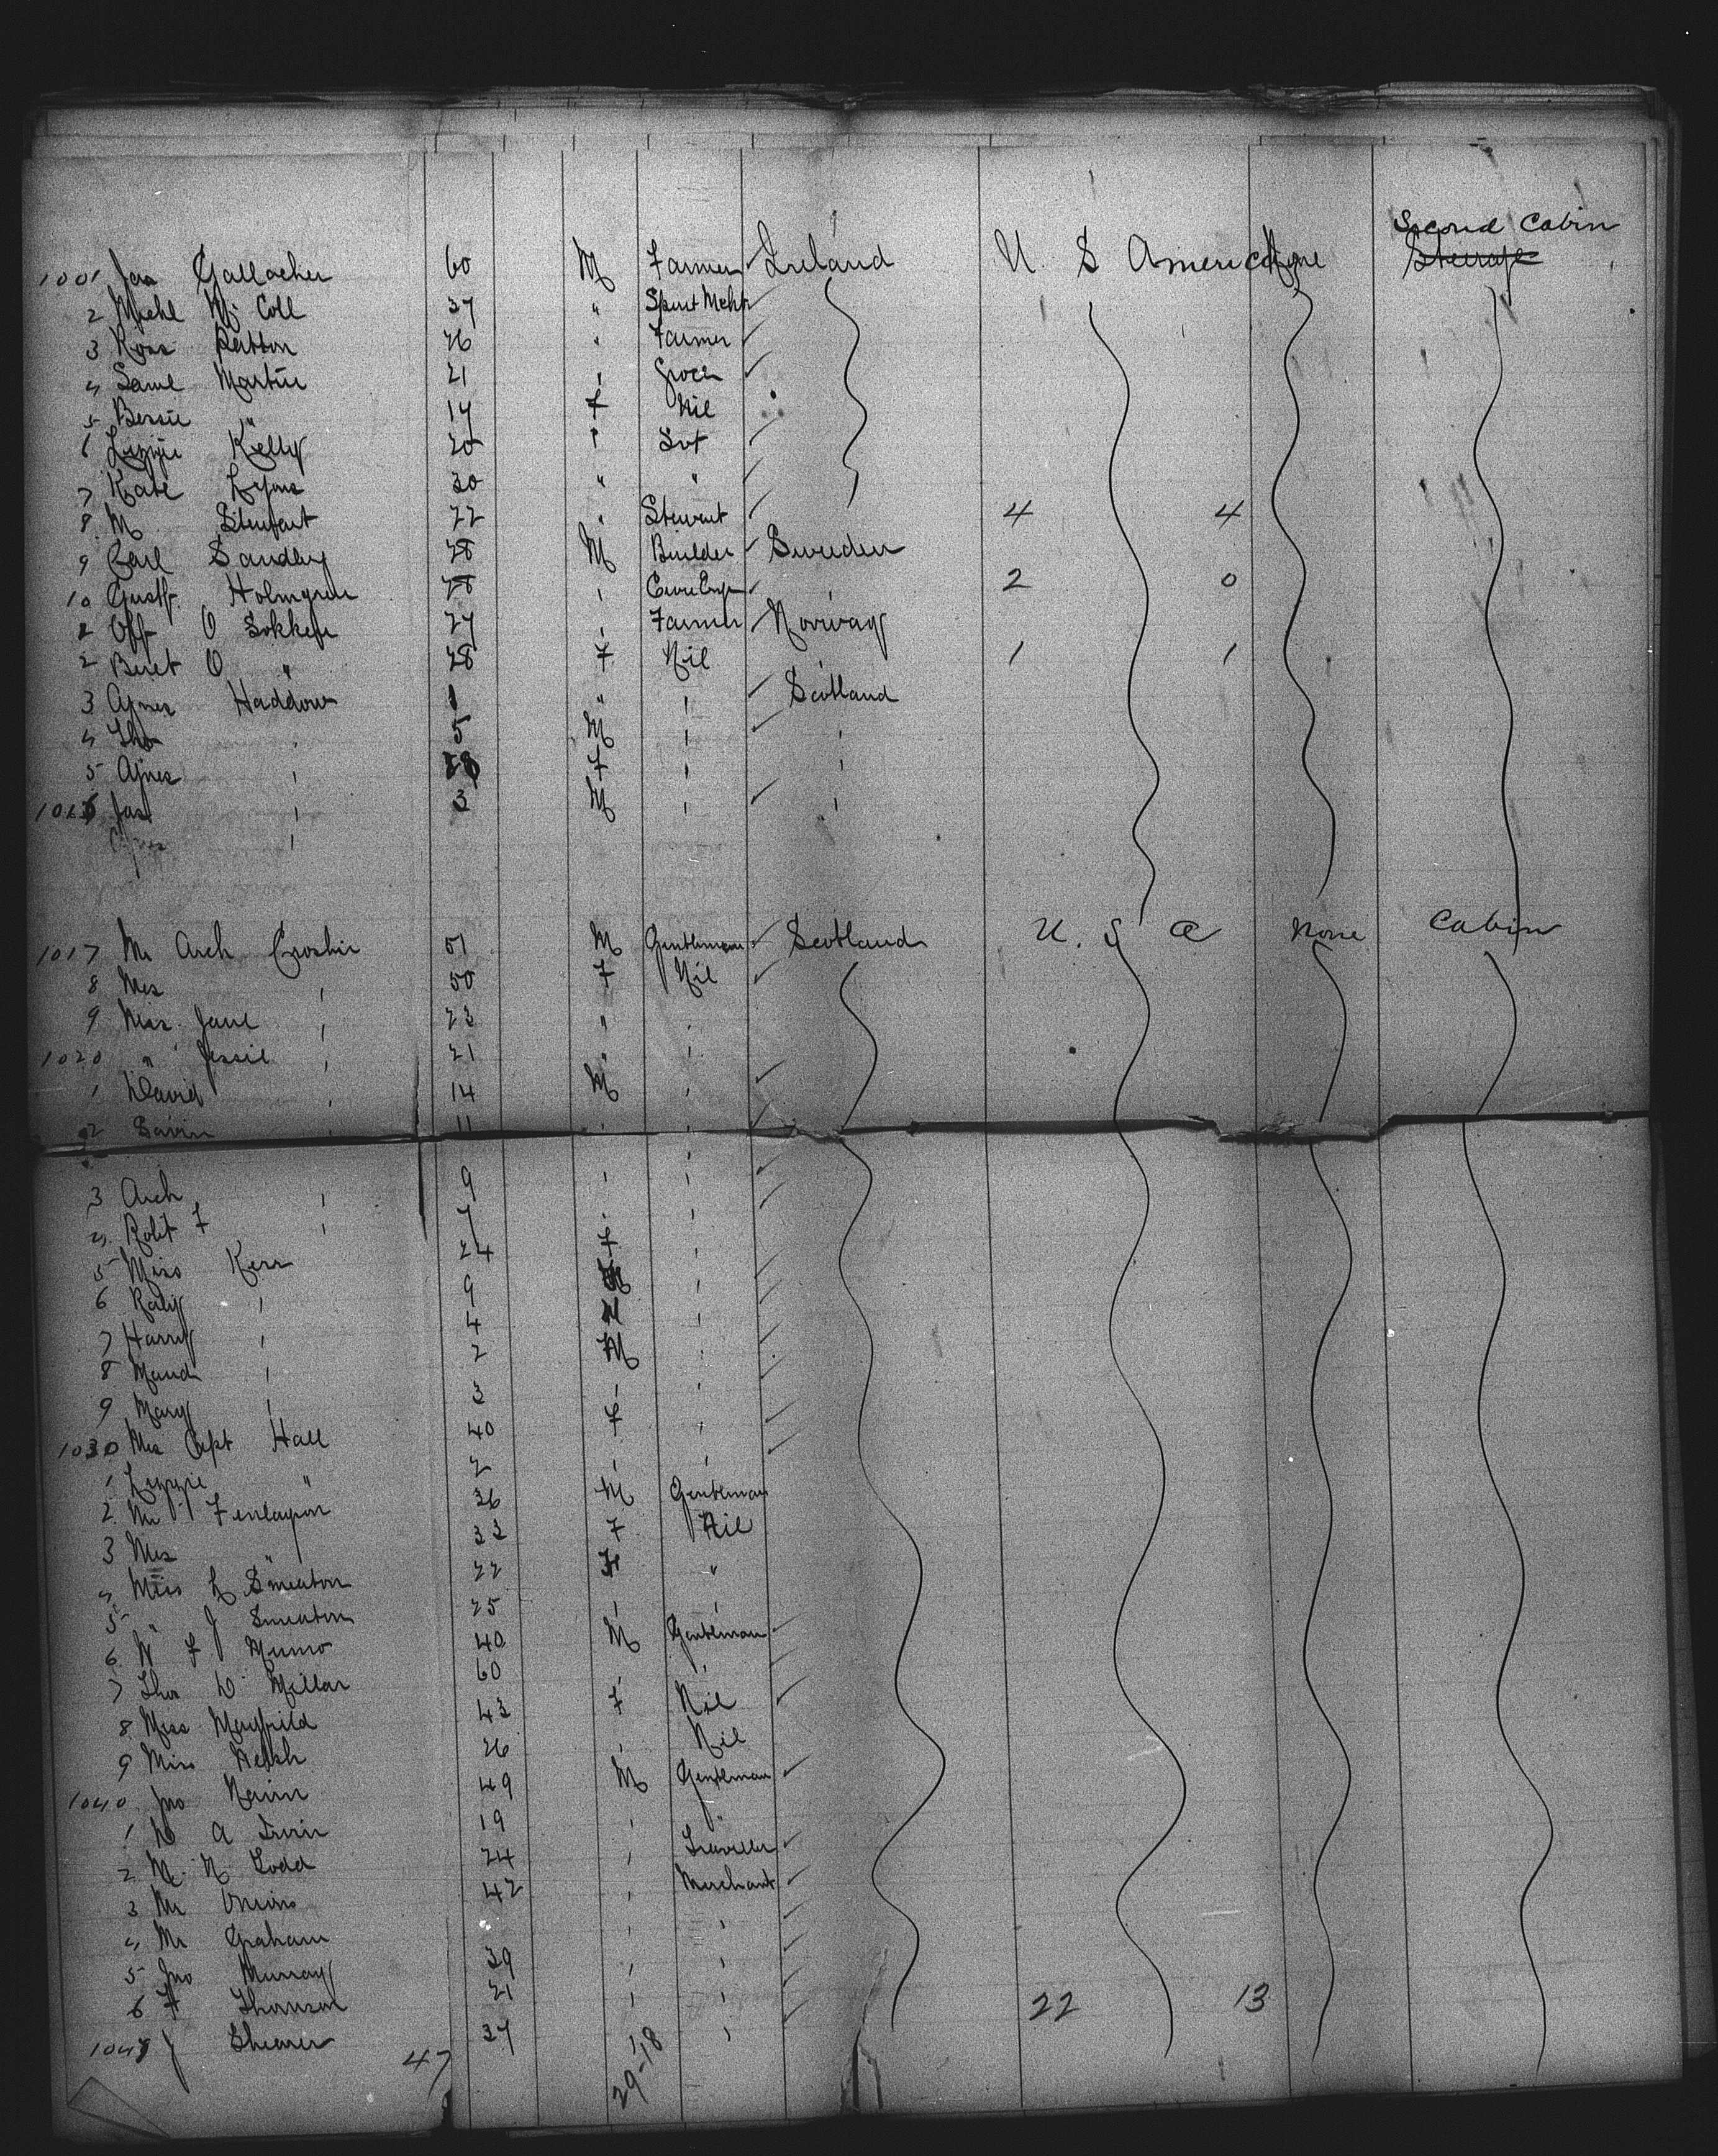 Second Cabin
1001 Jas Gallacher 60 M Farmer Ireland U. S America None Steerage
2 Michl Mc Coll 37 " Spirit Mcht
3 Ross Patton 26 " Farmer
4 Saml Martin 21 " Grocer
5 Bessie " 17 F Nil
6 Lizzie Kelly 20 " Svt
7 Kate Lyons 30 " "
8 M Stewart 22 " Stewart 4 4
9 Carl Sandby 28 M Builder Sweden
10 Gustf Holmgren 28 " 2 0
Off O Sokken 27 " Farmer Norway
2 Beret O " 28 F Nil 1 1
3 Agnes Haddow 1 " " Scotland
4 Tho " 5 M " "
5 Agnes " 28 F " "
1016 Jas " 3 M " "
Agnes "
1017 Mr Arch Croskir 51 M Gentleman Scotland U. S A None Cabin
8 Mrs " 50 F Nil
9 Miss Jane " 23 " "
1020 " Jessie " 21 " "
1 David " 14 M "
2 " 11 " "
3 Arch " 9 " "
4 Robt F " 7 " "
5 Miss Kerr 24 F "
6 Katy " 9 "
7 Harry " 4 M "
8 Maud " 2 M "
9 Mary " 3 " "
1030 Mrs Capt Hall 40 F "
1 Lizzie " 2 " "
2 Mr Finlayson 36 M Gentleman
3 Mrs " 33 F Nil
4 Miss L Smeaton 22 F "
5 " J Smeaton 25 " "
6 W F Munro 40 M Gentleman
7 Thos D Millar 60 " "
8 Miss Mayfield 43 F Nil
9 Miss Welsh 26 " Nil
1040 Jno Nairn 49 M Gentleman
1 W A Irvin 19 " "
2 M. N Todd 24 " Traveller
3 Mr 42 " Merchant
4 Mr Graham " "
5 Jno Murray 39 " "
6 F Thomson 21 " " 22 13
1047 J Shearer 37 " "
47 29-18